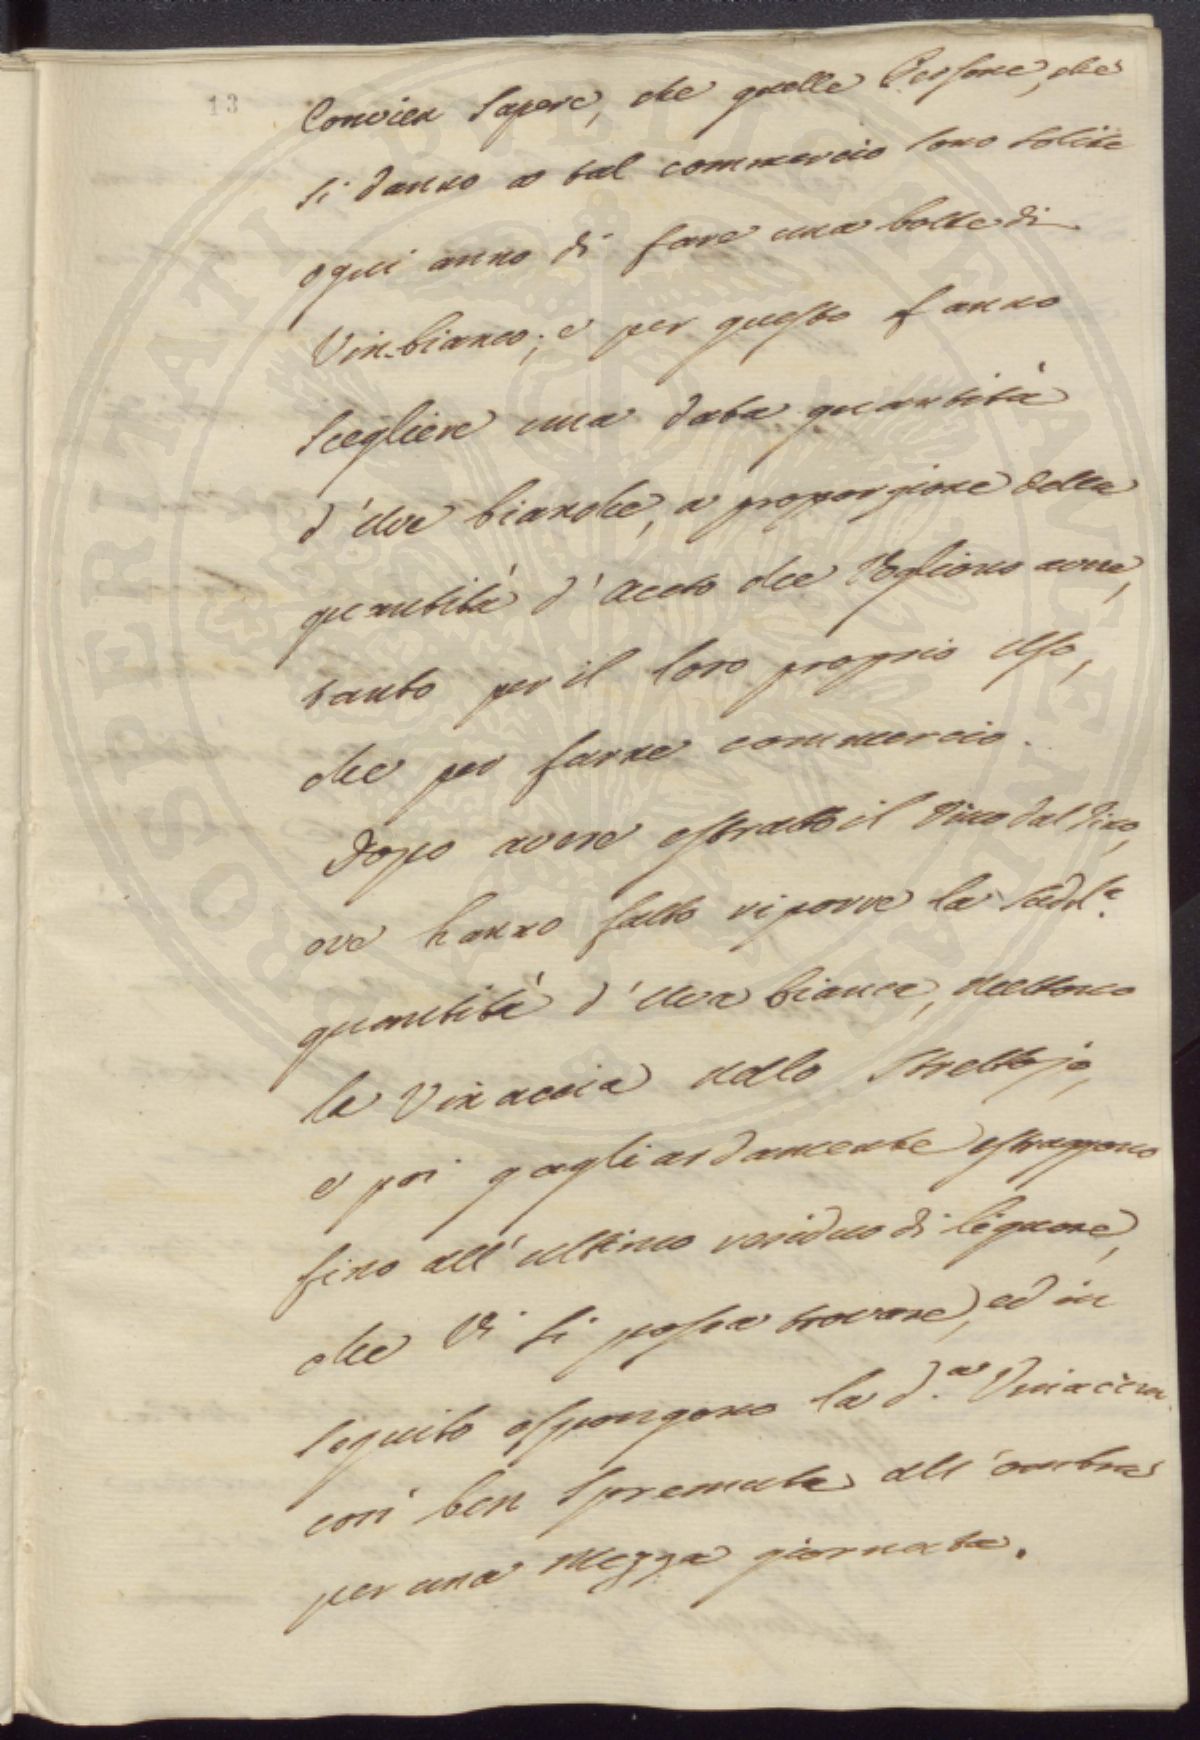 13
Convien Sapere, che quelle Persone, che
si danno a tal commercio sono solite
ogni anno di fare una botte di
Vin-bianco; e per questo fanno
scegliere una data quantità
d'Uve bianche, a proporzione della
quantità d'Aceto che Vogliono avere,
tanto per il loro proprio Uso,
che per farne commercio.
Dopo avere estratto il Vino dal Tino,
ove hanno fatto riporre la Sudd.ª
quantità d'Uva bianca, mettono
la Vinaccia nello Strettojo,
e poi gagliardamente estraggono
fino all'ultimo residuo di liquore,
che Vi si possa trovare, ed in
seguito espongono la d.ª Vinaccia
così ben Spremuta all'ombra
per una Mezza giornata.
PROSPERITATI PUBLICAE AUGENDAE